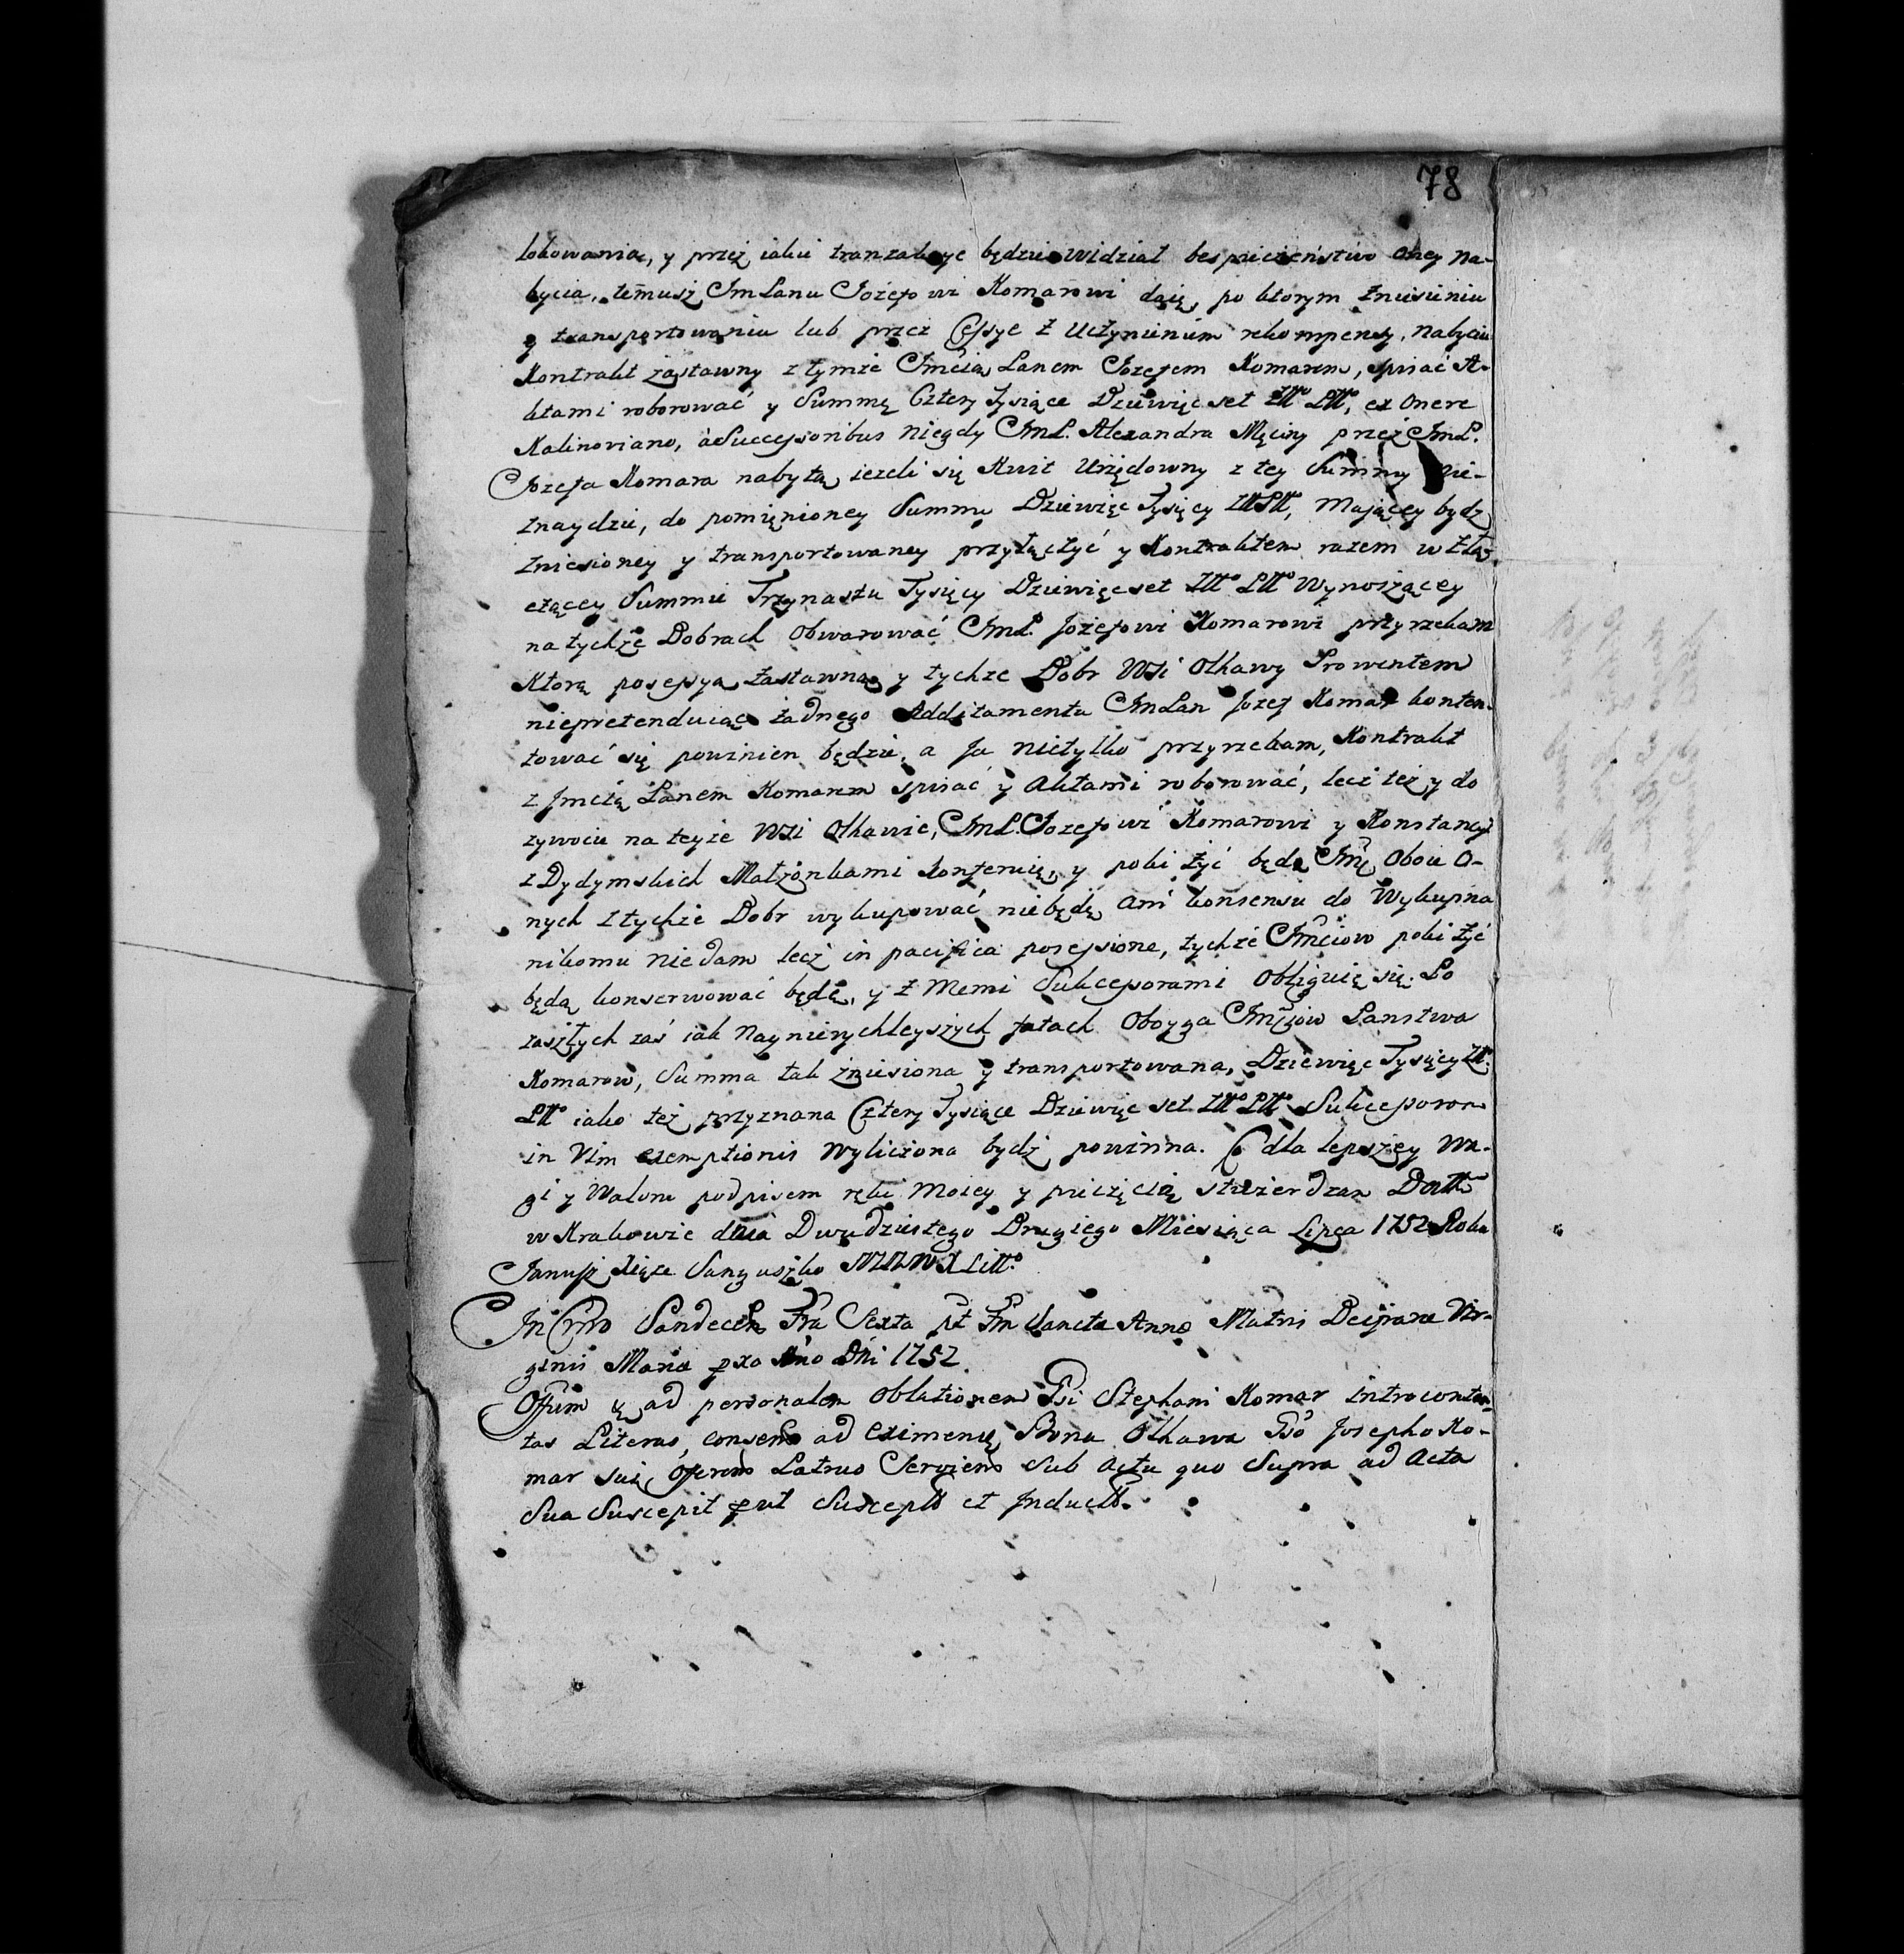 78
lokowania, y przez iakie tranzakcye będzie widział bespieczeństwo oney na-
bycia, temusz Jm Panu Jozefowi Komarowi daię, po ktorym zniesieniu
y transportowaniu lub przez Cessye z Uczynieniem rekompensy, nabyciu
Kontrakt zastawny z tymże Jmcią Panem Jozefem Komarem, spisać A-
ktami roborować y Summę Cztery Tysiące Dziewięcset Złło Płło, ex onere
Kalinoviano, à Successoribus niegdy JmP. Alexandra Męciny przez JmP.
Jozefa Komara nabytą iezeli się Kwit Urzędowny z tey Summy nie-
znaydzie, do pomięnioney Summy Dziewięc Tysięcy Złł Płł, Maiącey bydz
zniesioney y transportowaney przyłączyć y Kontraktem razem w złą-
czącey Summie Trzynastu Tysięcy Dziewięcset Złło Płło Wynoszącey
na tychże Dobrach obwarować JmP. Jozefowi Komarowi przyrzekam
Ktorą posessyą zastawną y tychze Dobr Wsi Ołkawy Prowentem
niepretenduiąc żadnego Additamentu Jm Pan Jozef Komar konten-
tować się powinien będzie, a Ja nietylko przyrzekam, Kontrakt
z Jmcią Panem Komarem spisać y Aktami roborować, lecz też y do
zywocie na teyże Wsi Ołkawie, JmP. Jozefowi Komarowi y Konstancyi
z Dydymskich Małżonkami konferuię, y poki żyć będą Jmć Oboie O-
nych z tychże Dobr wykupować niebędę ani konsensu do Wykupna
nikomu niedam lecz in pacifica posessione, tychże Jmciow poki żyć
będą konserwować będę, y z Memi Sukcessorami Obliguię się. Po
zaszłych zaś iak Naynierychleyszych fatach Oboyga Jmciow Panstwa
Komarow, Summa tak zniesiona y transportowana, Dziewięc Tysięcy Złło
Płło iako też przyznana Cztery Tysiące Dziewięcset Złło Płło Sukcessorom
in Vim exemptionis Wyliczona bydź powinna. Co dla lepszey Wa-
gi y Waloru podpisem ręki Moiey y pieczęcią stwierdzam Datt
w Krakowie dnia Dwudziestego Drugiego Miesiąca Lipca 1752 Roku
Janusz Xiąże Sanguszko MNWXLitto
In Cstro Sandecen Fria Sexta pt Fm Sanctæ Annæ Matris Deiparæ Vir-
ginis Mariæ pxa Ano Dni 1752
Offium ad personalem Oblationem Gsi Stephani Komar introconten-
tas Literas, consens ad eximenū Bona Ołkawa Gso Josepho Ko-
mar sui Offerens Patruo Serviens Sub Actu quo Supra ad Acta
Sua Suscepit put Susceptt et Inductt.